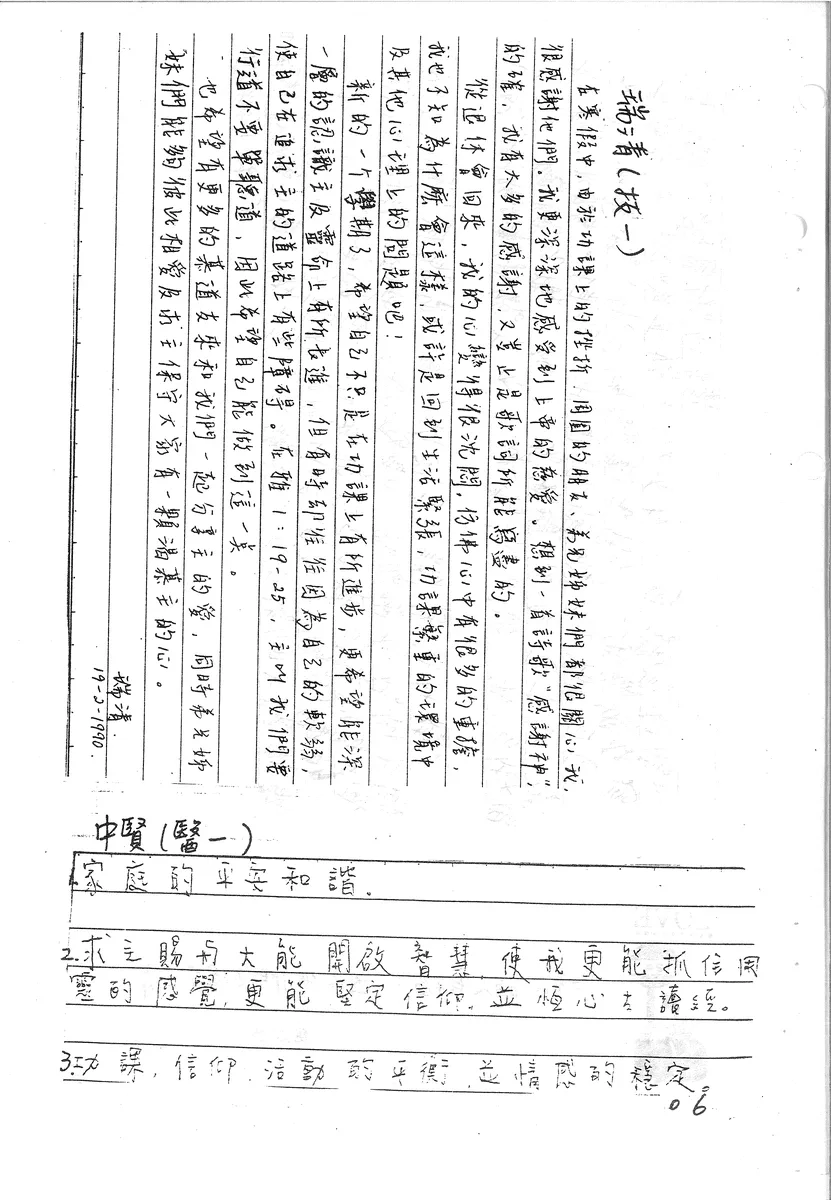 瑞清(技一)
在寒假中,由於功課上的挫折,周圍的朋友、弟兄姊妹們都很關心我,
很感謝他們。我更深深地感受到上帝的慈愛。想到一首詩歌"感謝神",
的確,我有太多的感謝,又豈止是歌詞所能寫盡的。
從退休會回來,我的心變得很沈悶,彷彿心中有很多的重擔,
我也不知為什麼會這樣,或許是回到生活緊張,功課繁重的環境中
及其他心理上的問題吧!
新的一個學期了,希望自己不只是在功課上有所進步,更希望能深
一層的認識主及靈命上有所長進,但有時卻往往因為自己的軟弱,
使自己在追求主的道路上有些障碍。在雅1:19-25,主叫我們要
行道不要單聽道,因此希望自己能做到這一点。
也希望有更多的慕道友來和我們一起分享主的愛,同時弟兄姊
妹們能夠彼此相愛及求主保守大家有一顆渴慕主的心。
瑞清
19-2-1990.
中賢(醫一)
1.家庭的平安和諧.
2.求主賜与大能開啟智慧,使我更能抓住因
靈的感覺,更能堅定信仰,並恆心去讀經。
3.功課,信仰,活動的平衡,並情感的穩定。
06